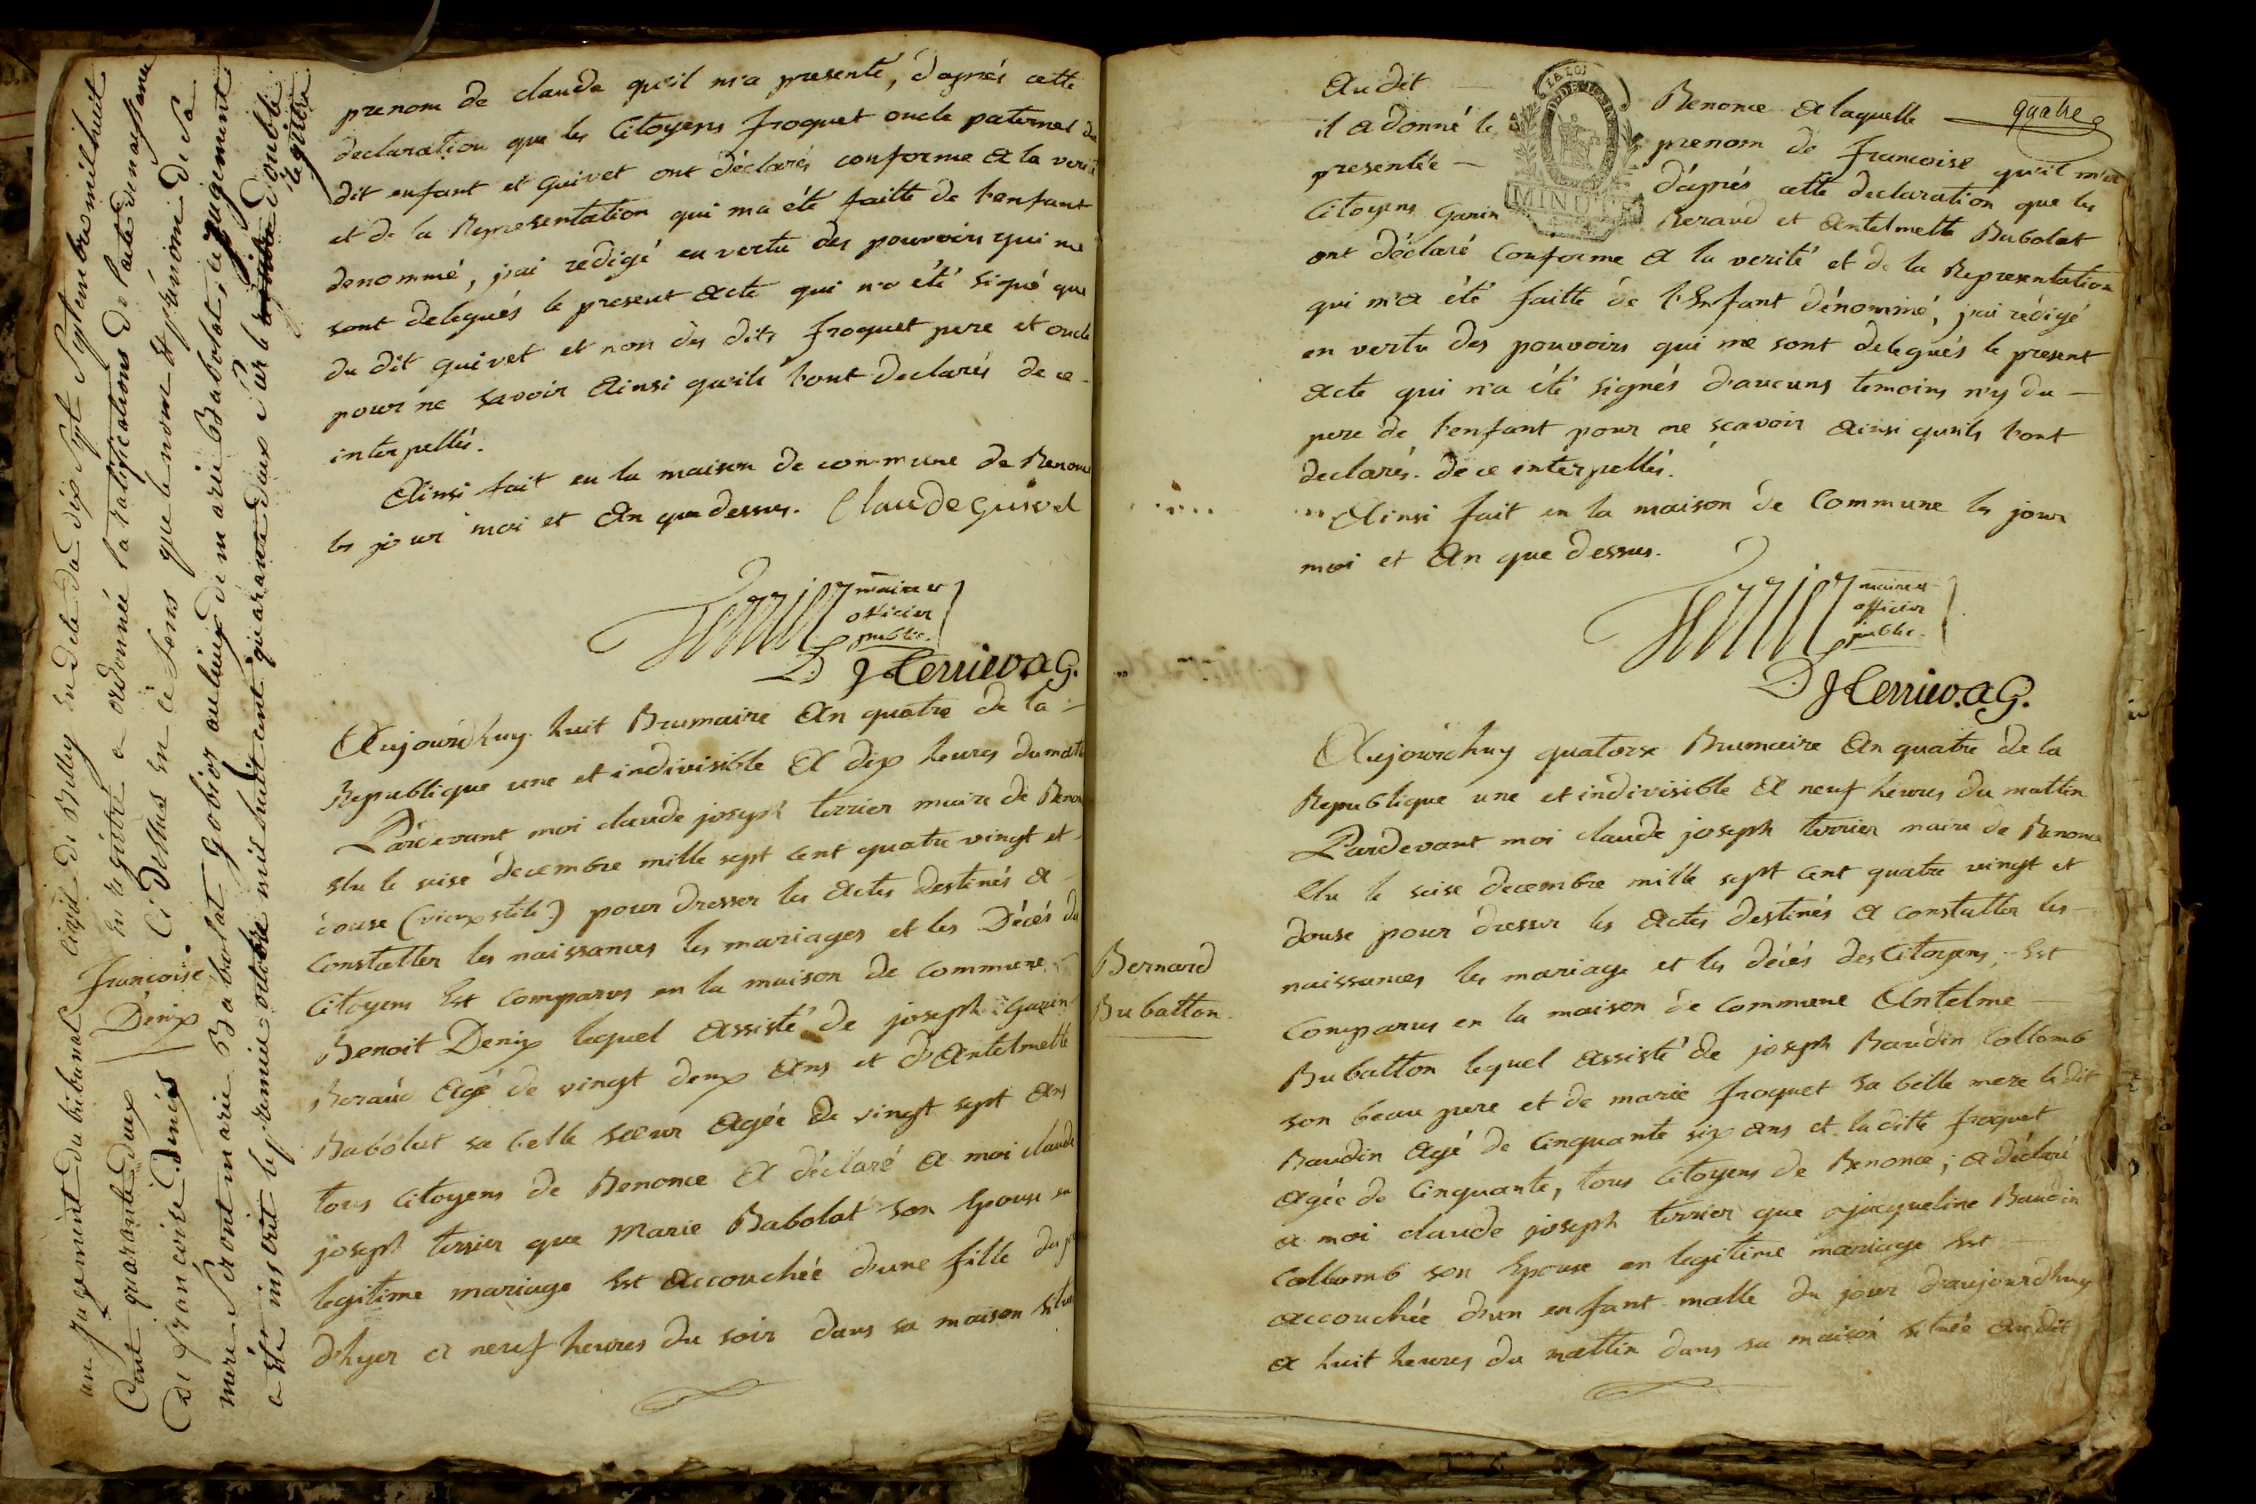 un jugement du tribunal civil de Belley en date du dix sept Septembre mil huit
Cent quarante deux enregistré a ordonnée la ratifications de l'acte de naissance
de françoise Denis Ci Dessus en ce sens que le nom et prénom de sa
mere seront marie Babolat Gobior au lieu de marie Babolat, ce jugement
a été inscrit le premier octobre mil huit cent quarante deux Sur le double
registre
Francoise
Denix
prenom de claude qu'il m'a presenté, d'aprés cette
declaration que les Citoyens froquet oncle paternel du
dit enfant et Guivet ont déclarés conforme a la verité
et de la Representation qui ma été faitte de l'enfant
denommé, j'ai redigé en vertu des pouvoirs qui me
sont delegués le present acte qui n'a été signé que
du dit guivet et non des dits froquet pere et oncle
pour ne savoir ainsi qu'ils l'ont declarés de ce
interpellés.
Ainsi fait en la maison de commune de Benonce
les jour moi et an que dessus. Claude guivet
Terrier maire et
officier
public.
D J terrier. aG.
Aujourdhuy huit Brumaire an quatre de la
Republique une et indivisible a dix heures du matin
Pardevant moi claude joseph terrier maire de Benonce
elu le seise décembre mille sept cent quatre vingt et
douse (vieux stile) pour dresser les actes destinés a
constatter les naissances les mariages et les Décés des
Citoyens est comparus en la maison de commune
Benoit Denix lequel assisté de joseph Ganin
Beraud agé de vingt deux ans et d'Antelmette
Babolat sa belle sœur agée de vingt sept ans
tous citoyens de Benonce a déclaré a moi claude
joseph terrier que Marie Babolat son Epouse en
legitime mariage est accouchée d'une fille du jour
d'hyer a neuf heures du soir dans sa maison située
quatre
LA LOI
MINUTE
Audit Benonce a laquelle
il a donné le prenom de francoise qu'il m'a
presentée d'aprés cette declaration que les
Citoyens Ganin Beraud et Antelmette Babolat
ont déclaré Conforme a la verité et de la Representation
qui m'a été faitte de l'Enfant dénommé, j'ai rédigé
en vertu des pouvoirs qui me sont delegués le present
acte qui n'a été signés d'aucuns temoins n'y du
pere de l'enfant pour ne scavoir ainsi qu'ils l'ont
declarés. de ce intérpellés.
Ainsi fait en la maison de Commune les jour
moi et an que dessus.
Terrier maire et
officier
public.
D J terrier. aG.
Bernard
Bubatton
Aujourdhuy quatorse Brumaire an quatre de la
Republique une et indivisible a neuf heures du mattin
Pardevant moi claude joseph terrier maire de Benonce
elu le seise decembre mille sept cent quatre vingt et
douse pour dresser les actes destinés a constatter les
naissances les mariage et les décés des Citoyens, Est
Comparus en la maison de commune Antelme
Bubatton lequel assisté de joseph Baudin Collomb
son beau pere et de marie froquet sa belle mere ledit
Baudin agé de Cinquante six ans et la ditte froquet
agée de Cinquante, tous citoyens de Benonce; a déclaré
a moi claude joseph terrier que jacqueline Baudin
Collomb son Epouse en legitime mariage est
accouchée d'un enfant malle du jour d'aujourdhuy
a huit heures du mattin dans sa maison située audit